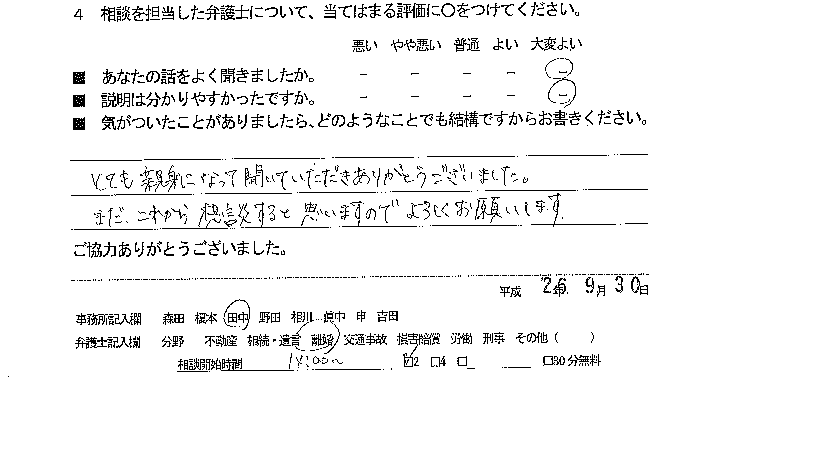 4 相談を担当した弁護士について、当てはまる評価に〇をつけてください。
悪い やや悪い 普通 よい 大変よい
■ あなたの話をよく聞きましたか。 － － － － －
■ 説明は分かりやすかったですか。 － － － － －
■ 気がついたことがありましたら、どのようなことでも結構ですからお書きください。
とても親身になって聞いていただきありがとうございました。
まだ、これから相談すると思いますのでよろしくお願いします。
ご協力ありがとうございました。
平成 26年 9月 30日
事務所記入欄 森田 榎本 田中 野田 相川 眞中 申 吉田
弁護士記入欄 分野 不動産 相続・遺言 離婚 交通事故 損害賠償 労働 刑事 その他（ ）
相談開始時間 ☑2 □4 □ □30分無料